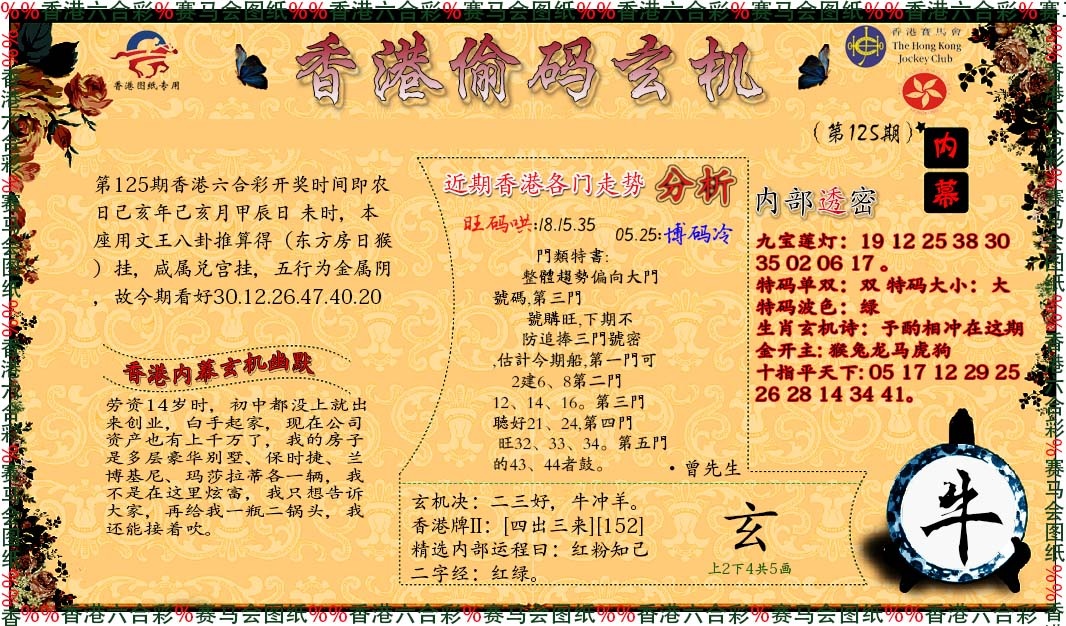 %%香港六合彩%赛马会图纸%%香港六合彩%赛马会图纸%%香港六合彩%赛马会图纸%%香港六合彩%赛
香港图纸专用
香港偷码玄机
香港賽馬會
The Hong Kong
Jockey Club
(第125期)
内幕
第125期香港六合彩开奖时间即农
日己亥年己亥月甲辰日 未时，本
座用文王八卦推算得（东方房日猴
）挂，咸属兑宫挂，五行为金属阴
，故今期看好30.12.26.47.40.20
香港内幕玄机幽默
劳资14岁时，初中都没上就出
来创业，白手起家，现在公司
资产也有上千万了，我的房子
是多层豪华别墅、保时捷、兰
博基尼、玛莎拉蒂各一辆，我
不是在这里炫富，我只想告诉
大家，再给我一瓶二锅头，我
还能接着吹。
近期香港各门走势 分析
旺码哄:18.15.35
05.25:博码冷
門類特書:
整體趨勢偏向大門
號碼,第三門
號購旺,下期不
防追捧三門號密
,估計今期船,第一門可
2建6、8第二門
12、14、16。第三門
聽好21、24,第四門
旺32、33、34。第五門
的43、44者鼓。
·曾先生
玄机决：二三好，牛冲羊。
香港牌II：[四出三来][152]
精选内部运程曰：红粉知己
二字经：红绿。
玄
上2下4共5画
内部透密
九宝莲灯：19 12 25 38 30
35 02 06 17 。
特码单双：双 特码大小：大
特码波色：绿
生肖玄机诗：予酌相冲在这期
金开主: 猴兔龙马虎狗
十指平天下: 05 17 12 29 25
26 28 14 34 41。
牛
香%%香港六合彩%赛马会图纸%%香港六合彩%赛马会图纸%%香港六合彩%赛马会图纸%%香港六合彩%